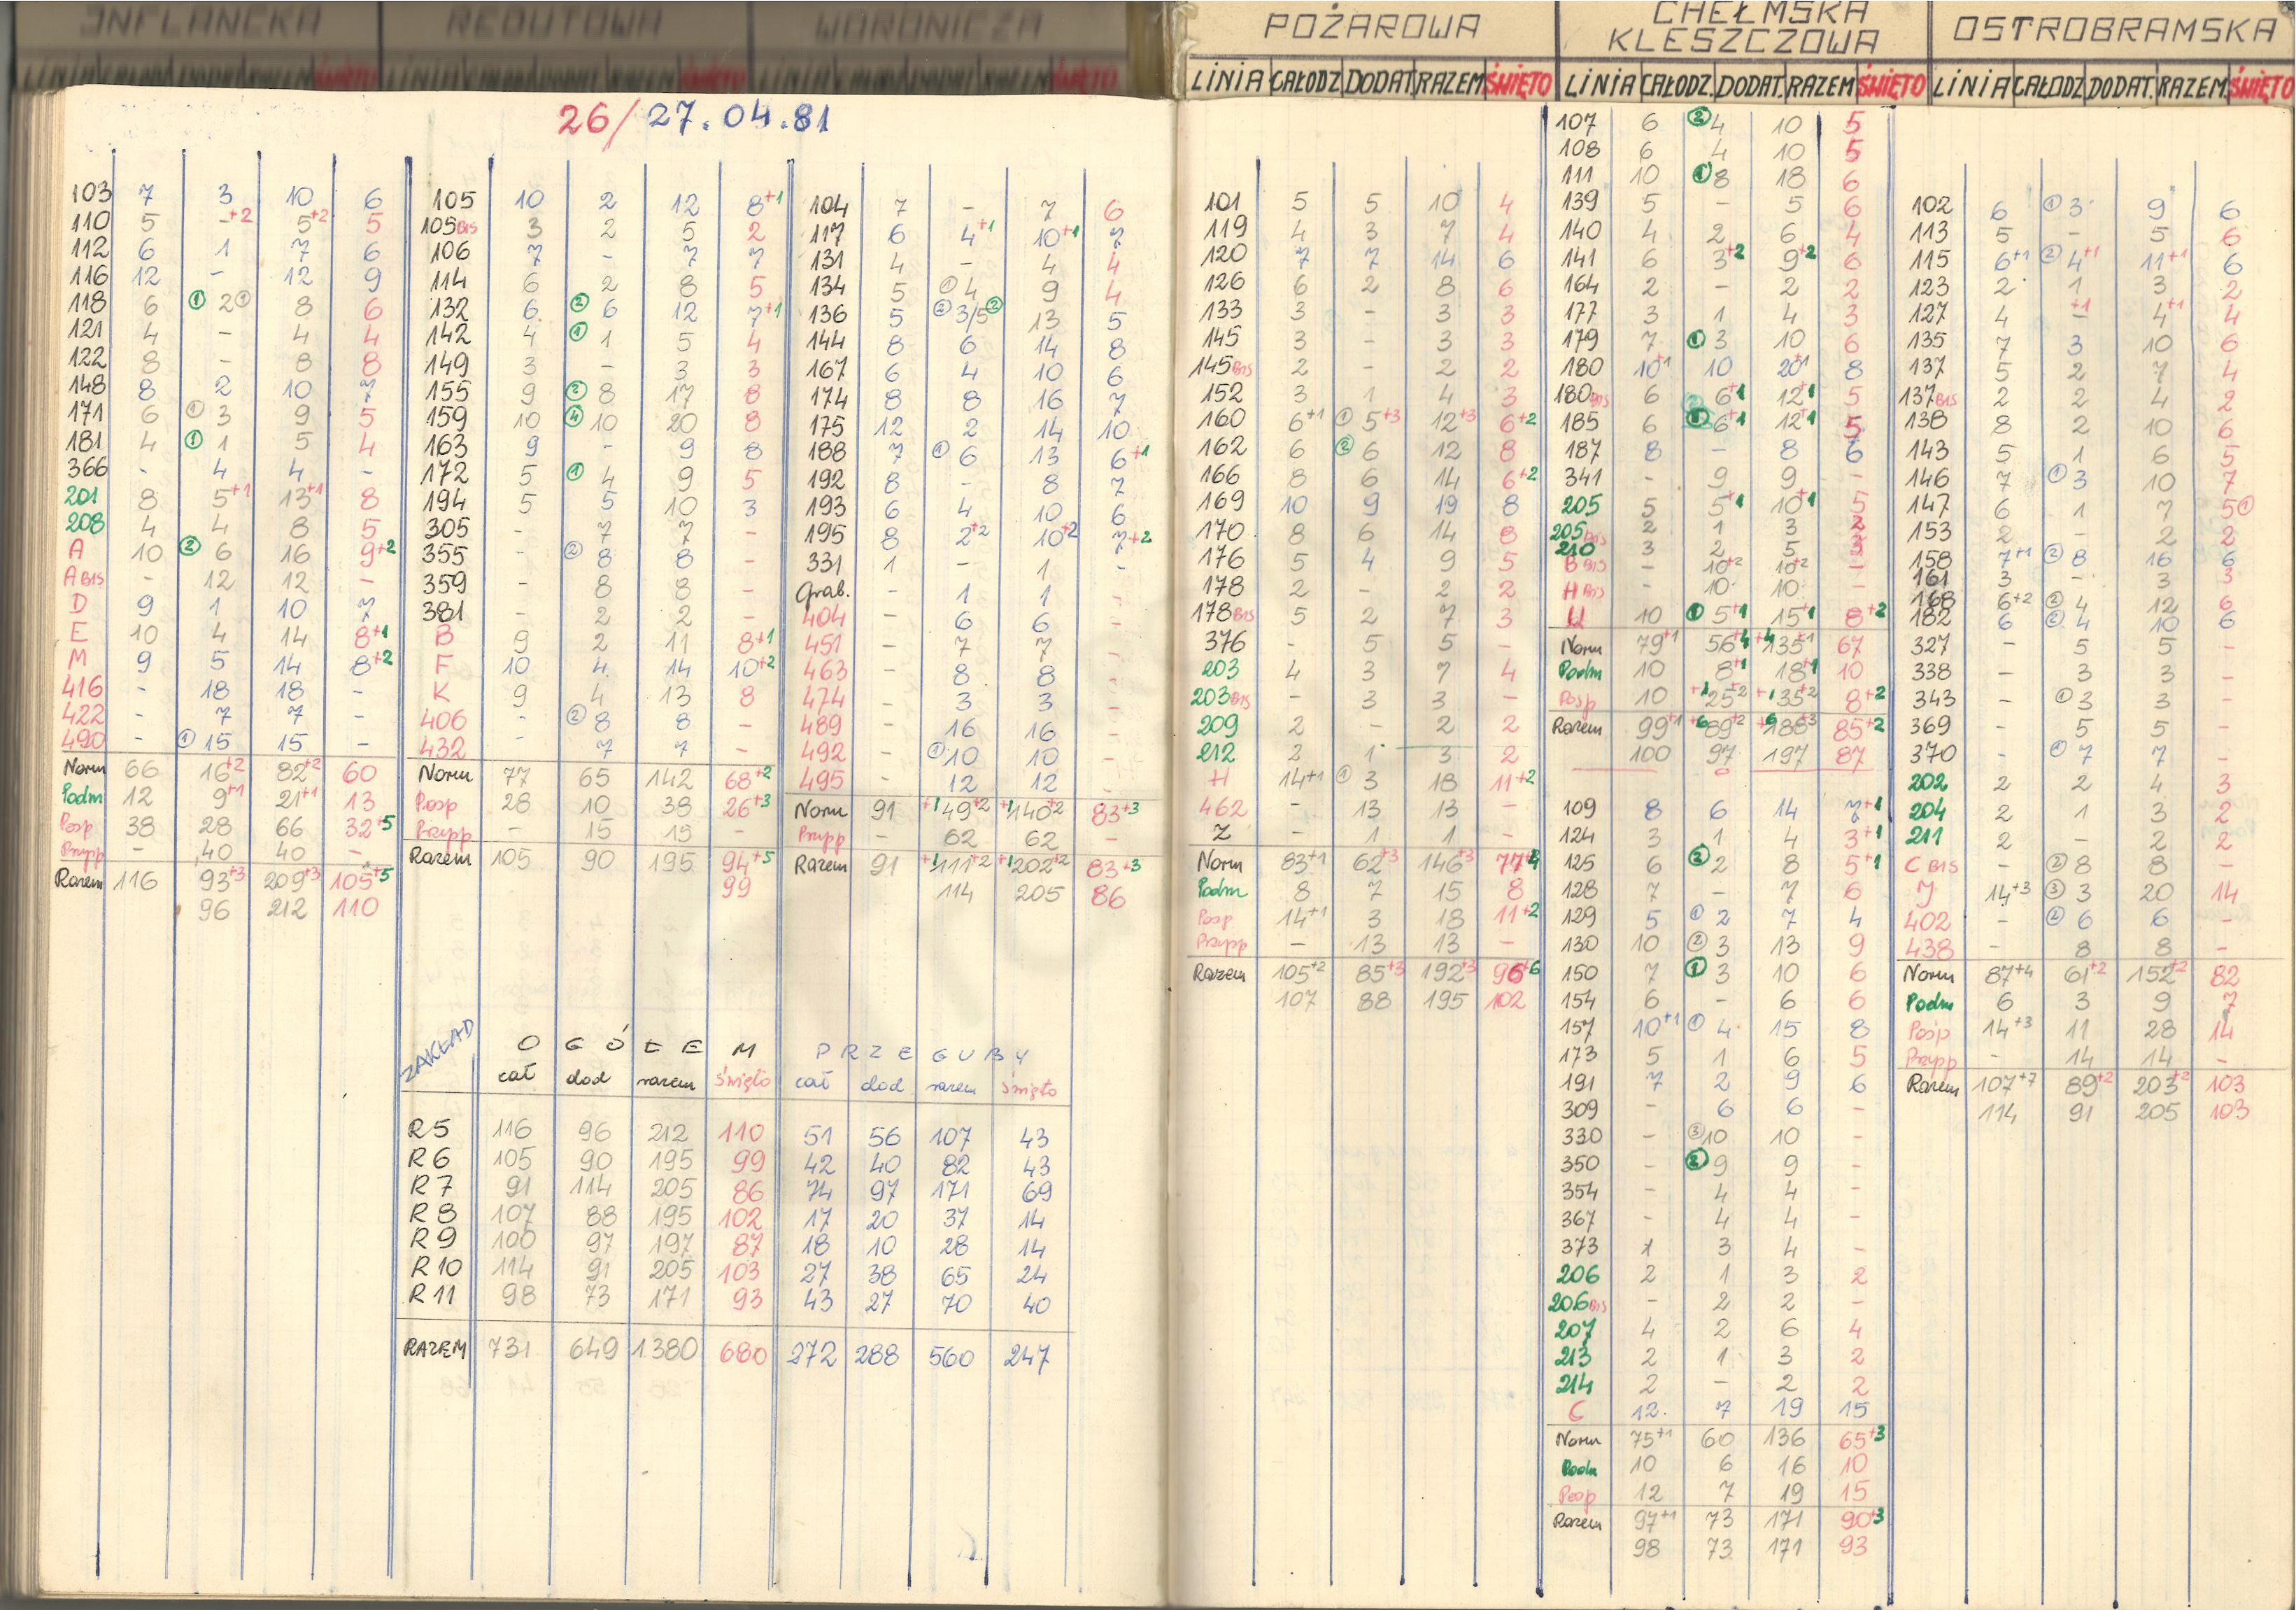 INFLANCKA REDUTOWA WORONICZA
POŻAROWA CHEŁMSKA KLESZCZOWA OSTROBRAMSKA
LINIA CAŁODZ DODAT RAZEM ŚWIĘTO LINIA CAŁODZ. DODAT. RAZEM ŚWIĘTO LINIA CAŁODZ DODAT. RAZEM. ŚWIĘTO
26/27.04.81
103 7 3 10 6
110 5 -+2 5+2 5
112 6 1 7 6
116 12 - 12 9
118 6 ① 2 ① 8 6
121 4 - 4 4
122 8 - 8 8
148 8 2 10 7
171 6 ① 3 9 5
181 4 ① 1 5 4
366 - 4 4 -
201 8 5+1 13+1 8
208 4 4 8 5
A 10 ② 6 16 9+2
A BIS - 12 12 -
D 9 1 10 7
E 10 4 14 8+1
M 9 5 14 8+2
416 - 18 18 -
422 - 7 7 -
490 - ① 15 15 -
Norm 66 16+2 82+2 60
Podm 12 9+1 21+1 13
Posp 38 28 66 32+5
Przysp - 40 40 -
Razem 116 93+3 209+3 105+5
96 212 110
105 10 2 12 8+1
105 BIS 3 2 5 2
106 7 - 7 7
114 6 2 8 5
132 6 ② 6 12 7+1
142 4 ① 1 5 4
149 3 - 3 3
155 9 ② 8 17 8
159 10 ④ 10 20 8
163 9 - 9 8
172 5 ① 4 9 5
194 5 5 10 3
305 - 7 7 -
355 - ② 8 8 -
359 - 8 8 -
381 - 2 2 -
B 9 2 11 8+1
F 10 4 14 10+2
K 9 4 13 8
406 - ② 8 8 -
432 - 7 7 -
Norm 77 65 142 68+2
Posp 28 10 38 26+3
Przypp - 15 15 -
Razem 105 90 195 94+5
99
104 7 - 7 6
117 6 4+1 10+1 7
131 4 - 4 4
134 5 ① 4 9 4
136 5 ② 3/5 ② 13 5
144 8 6 14 8
167 6 4 10 6
174 8 8 16 7
175 12 2 14 10
188 7 ① 6 13 6+1
192 8 - 8 7
193 6 4 10 6
195 8 2+2 10+2 7+2
331 1 - 1 -
Grab. - 1 1 -
404 - 6 6 -
451 - 7 7 -
463 - 8 8 -
474 - 3 3 -
489 - 16 16 -
492 - ① 10 10 -
495 - 12 12 -
Norm 91 +1 49+2 +1 140+2 83+3
Przypp - 62 62 -
Razem 91 +1 111+2 +1 202+2 83+3
114 205 86
ZAKŁAD OGÓŁEM PRZEGUBY
cał dod razem święto cał dod razem święto
R5 116 96 212 110 51 56 107 43
R6 105 90 195 99 42 40 82 43
R7 91 114 205 86 74 97 171 69
R8 107 88 195 102 17 20 37 14
R9 100 97 197 87 18 10 28 14
R10 114 91 205 103 27 38 65 24
R11 98 73 171 93 43 27 70 40
RAZEM 731 649 1380 680 272 288 560 247
101 5 5 10 4
119 4 3 7 4
120 7 7 14 6
126 6 2 8 6
133 3 - 3 3
145 3 - 3 3
145 BIS 2 - 2 2
152 3 1 4 3
160 6+1 ① 5+3 12+3 6+2
162 6 ② 6 12 8
166 8 6 14 6+2
169 10 9 19 8
170 8 6 14 8
176 5 4 9 5
178 2 - 2 2
178 BIS 5 2 7 3
376 - 5 5 -
203 4 3 7 4
203 BIS - 3 3 -
209 2 - 2 2
212 2 1 3 2
H 14+1 ① 3 18 11+2
462 - 13 13 -
Z - 1 1 -
Norm 83+1 62+3 146+3 77+4
Podm 8 7 15 8
Posp 14+1 3 18 11+2
Przypp - 13 13 -
Razem 105+2 85+3 192+3 96+6
107 88 195 102
107 6 ② 4 10 5
108 6 4 10 5
111 10 ① 8 18 6
139 5 - 5 6
140 4 2 6 4
141 6 3+2 9+2 6
164 2 - 2 2
177 3 1 4 3
179 7 ① 3 10 6
180 10+1 10 20+1 8
180 BIS 6 6+1 12+1 5
185 6 6+1 12+1 5
187 8 - 8 6
341 - 9 9 -
205 5 5+1 10+1 5
205 BIS 2 1 3 2
210 3 2 5 3
B BIS - 10+2 10+2 -
H BIS - 10 10 -
U 10 ① 5+1 15+1 8+2
Norm 79+1 56+4 +4 135+1 67
Podm 10 8+1 18+1 10
Posp 10 +1 25+2 +1 35+2 8+2
Razem 99+1 +6 89+2 +6 188+3 85+2
100 97 197 87
109 8 6 14 7+1
124 3 1 4 3+1
125 6 ② 2 8 5+1
128 7 - 7 6
129 5 ① 2 7 4
130 10 ② 3 13 9
150 7 ① 3 10 6
154 6 - 6 6
157 10+1 ① 4 15 8
173 5 1 6 5
191 7 2 9 6
309 - 6 6 -
330 - ③ 10 10 -
350 - ② 9 9 -
354 - 4 4 -
367 - 4 4 -
373 1 3 4 -
206 2 1 3 2
206 BIS - 2 2 -
207 4 2 6 4
213 2 1 3 2
214 2 - 2 2
C 12 7 19 15
Norm 75+1 60 136 65+3
Podm 10 6 16 10
Posp 12 7 19 15
Razem 97+1 73 171 90+3
98 73 171 93
102 6 ① 3 9 6
113 5 - 5 6
115 6+1 ② 4+1 11+1 6
123 2 1 3 2
127 4 -+1 4+1 4
135 7 3 10 6
137 5 2 7 4
137 BIS 2 2 4 2
138 8 2 10 6
143 5 1 6 5
146 7 ① 3 10 7
147 6 1 7 5 ①
153 2 - 2 2
158 7+1 ② 8 16 6
161 3 - 3 3
168 6+2 ② 4 12 6
182 6 ② 4 10 6
327 - 5 5 -
338 - 3 3 -
343 - ① 3 3 -
369 - 5 5 -
370 - ① 7 7 -
202 2 2 4 3
204 2 1 3 2
211 2 - 2 2
C BIS - ② 8 8 -
J 14+3 ③ 3 20 14
402 - ② 6 6 -
438 - 8 8 -
Norm 87+4 61+2 152+2 82
Podm 6 3 9 7
Pośp 14+3 11 28 14
Przypp - 14 14 -
Razem 107+7 89+2 203+2 103
114 91 205 103